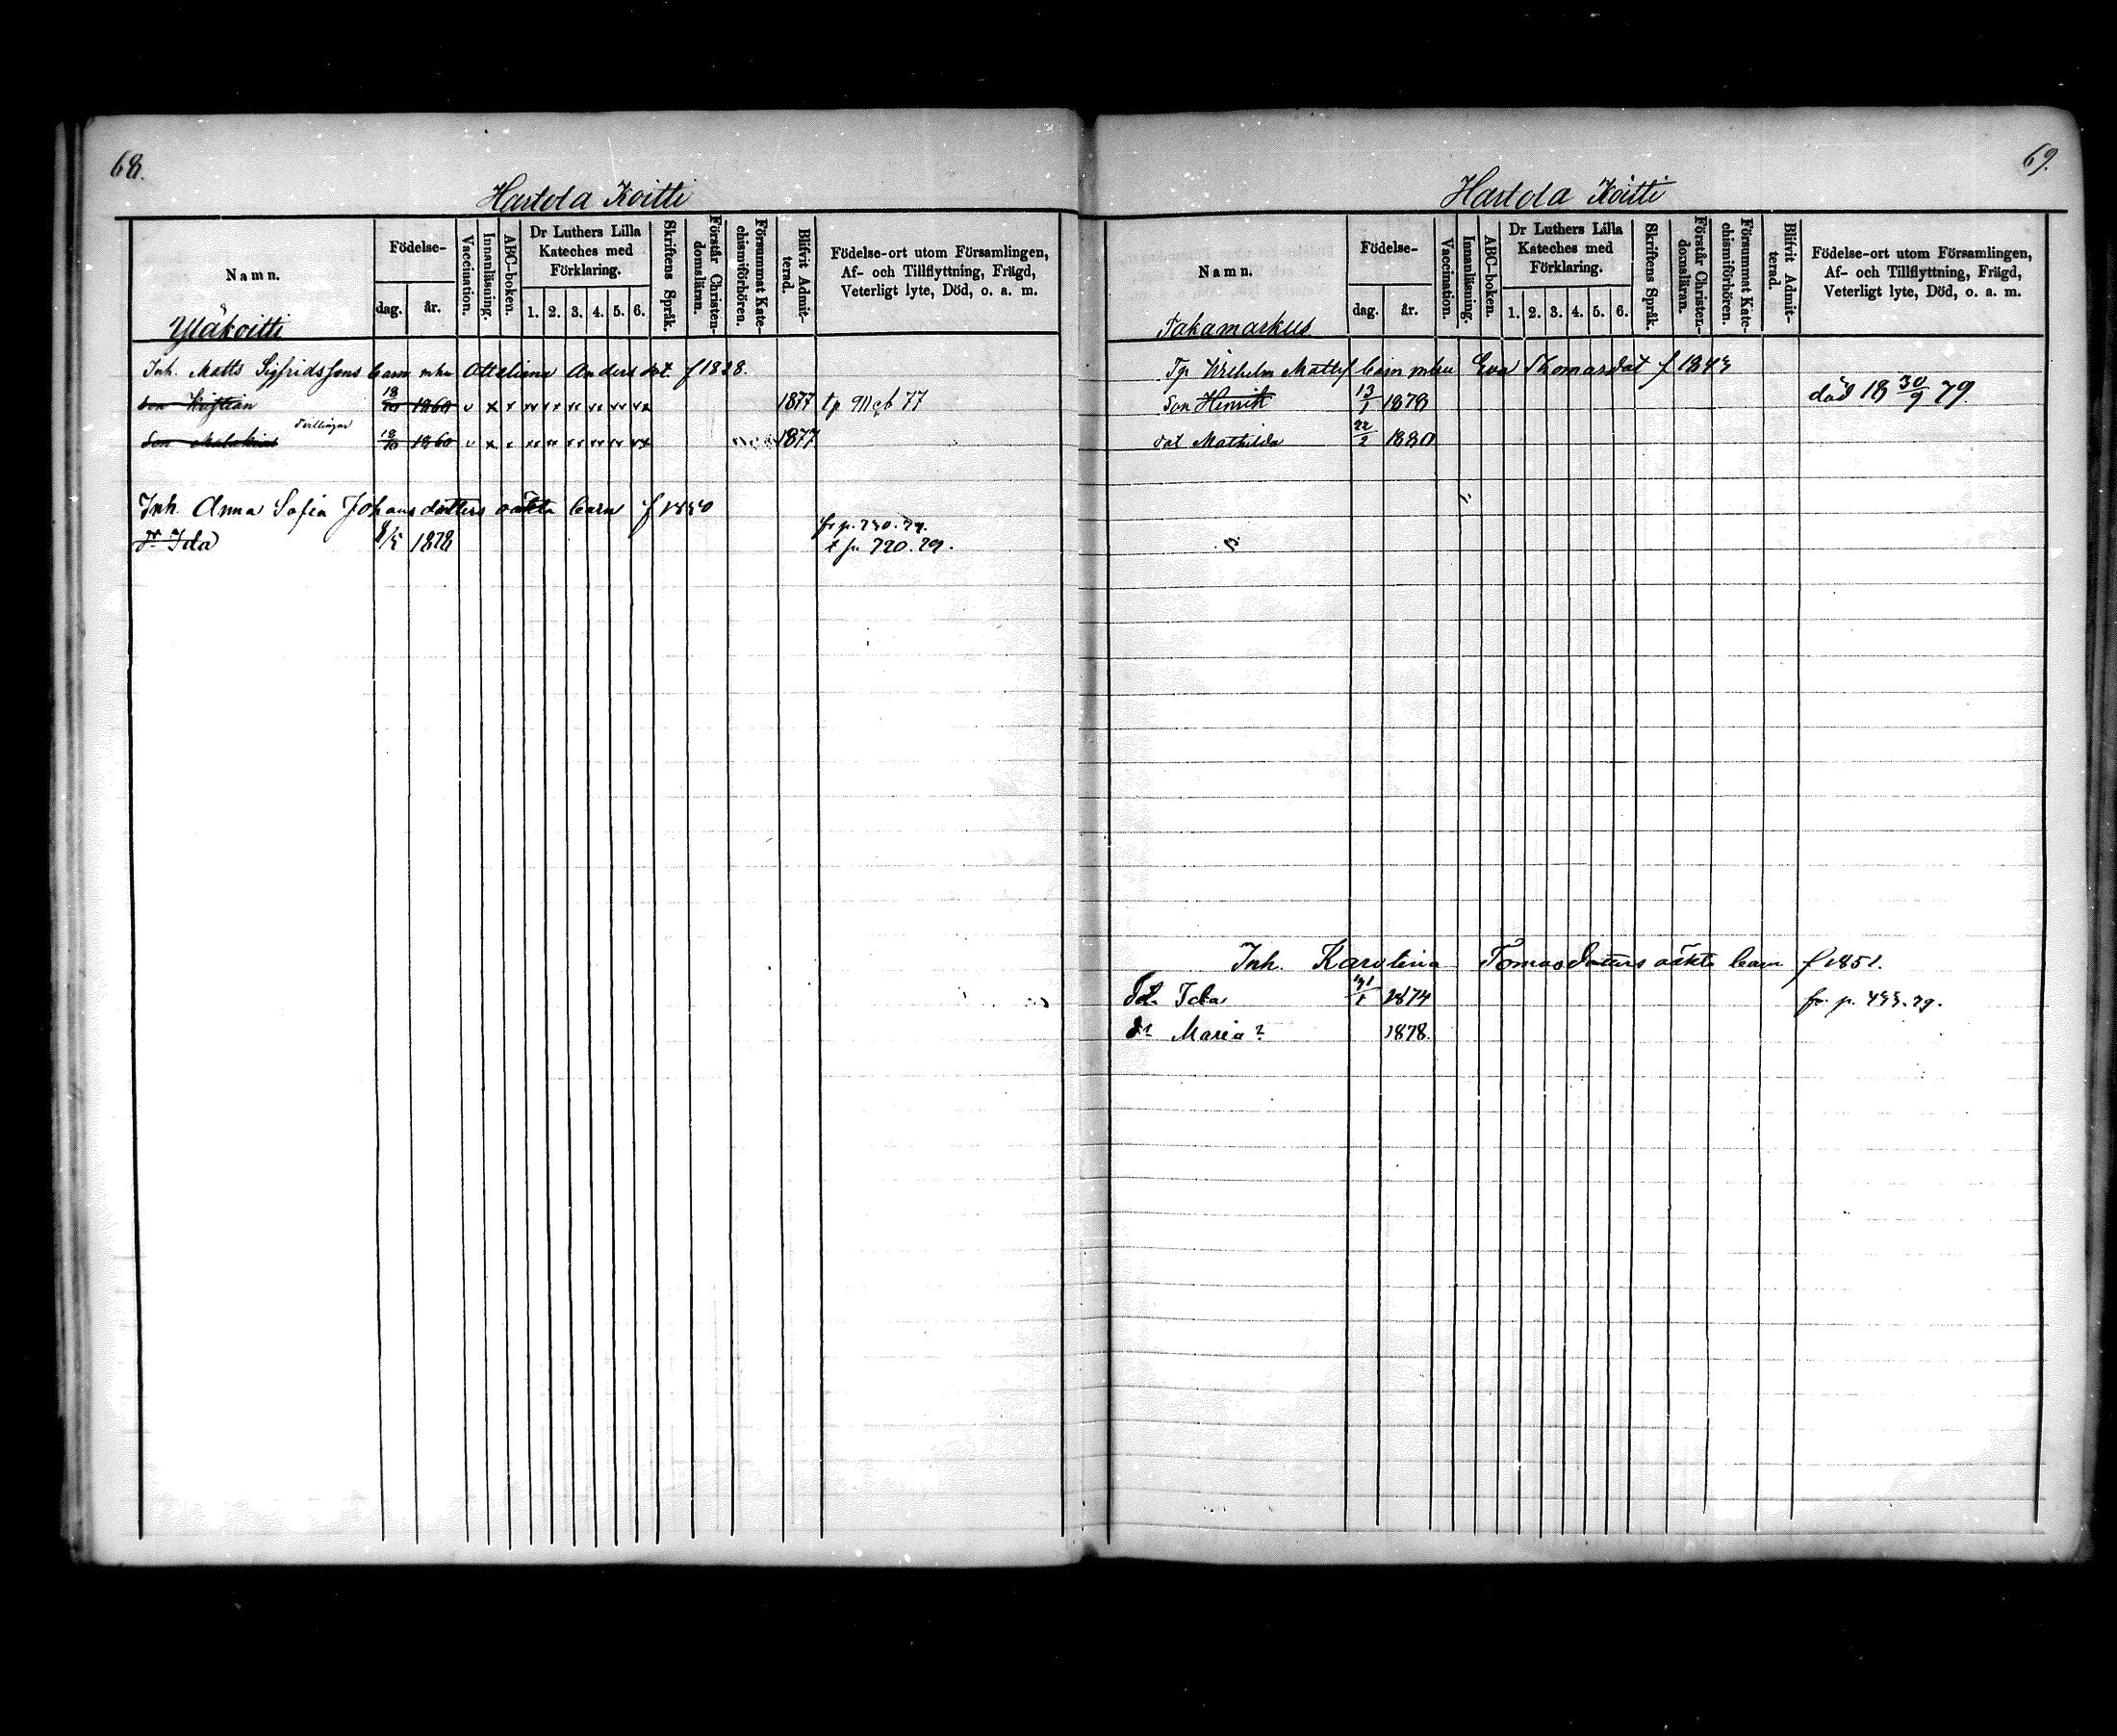 68.
Hartola Koitti
Namn.
Födelse-
dag.
år.
Vaccination.
Innanläsning.
ABC-boken.
Dr Luthers Lilla
Kateches med
Förklaring.
1. 2. 3. 4. 5. 6.
Skriftens Språk.
Förstår Christen-
domsläran.
Försummat Kate-
chismiförhören.
Blifvit Admit-
terad.
Födelse-ort utom Församlingen,
Af- och Tillflyttning, Frägd,
Veterligt lyte, Död, o. a. m.
Yläkoitti
Inh. Matts Sigfridssons barn mhu Otteliana Anders dot. f 1828.
Son Kristian 18/10 1860 1877 t p 77
Tvillingar
Son 18/10 1860 1877
Inh. Anna Sofia Johansdotters oäkta barn f 1850
fr p. 730. 79.
dr Ida 8/5 1878 t p. 720. 79.
69.
Hartola Koitti
Namn.
Födelse-
dag.
år.
Vaccination.
Innanläsning.
ABC-boken.
Dr Luthers Lilla
Kateches med
Förklaring.
1. 2. 3. 4. 5. 6.
Skriftens Språk.
Förstår Christen-
domsläran.
Försummat Kate-
chismiförhören.
Blifvit Admit-
terad.
Födelse-ort utom Församlingen,
Af- och Tillflyttning, Frägd,
Veterligt lyte, Död, o. a. m.
Takamarkus
Vilhelm Mattsf barn mhu Eva Thomasdot f 1843
Son Henrik 13/1 1878 död 18 30/9 79.
dot Mathilda 22/2 1880
Inh. Karolina Tomasdotters oäkta barn f 1851.
Ida 1874 fr. p. 79.
dr Maria? 1878.